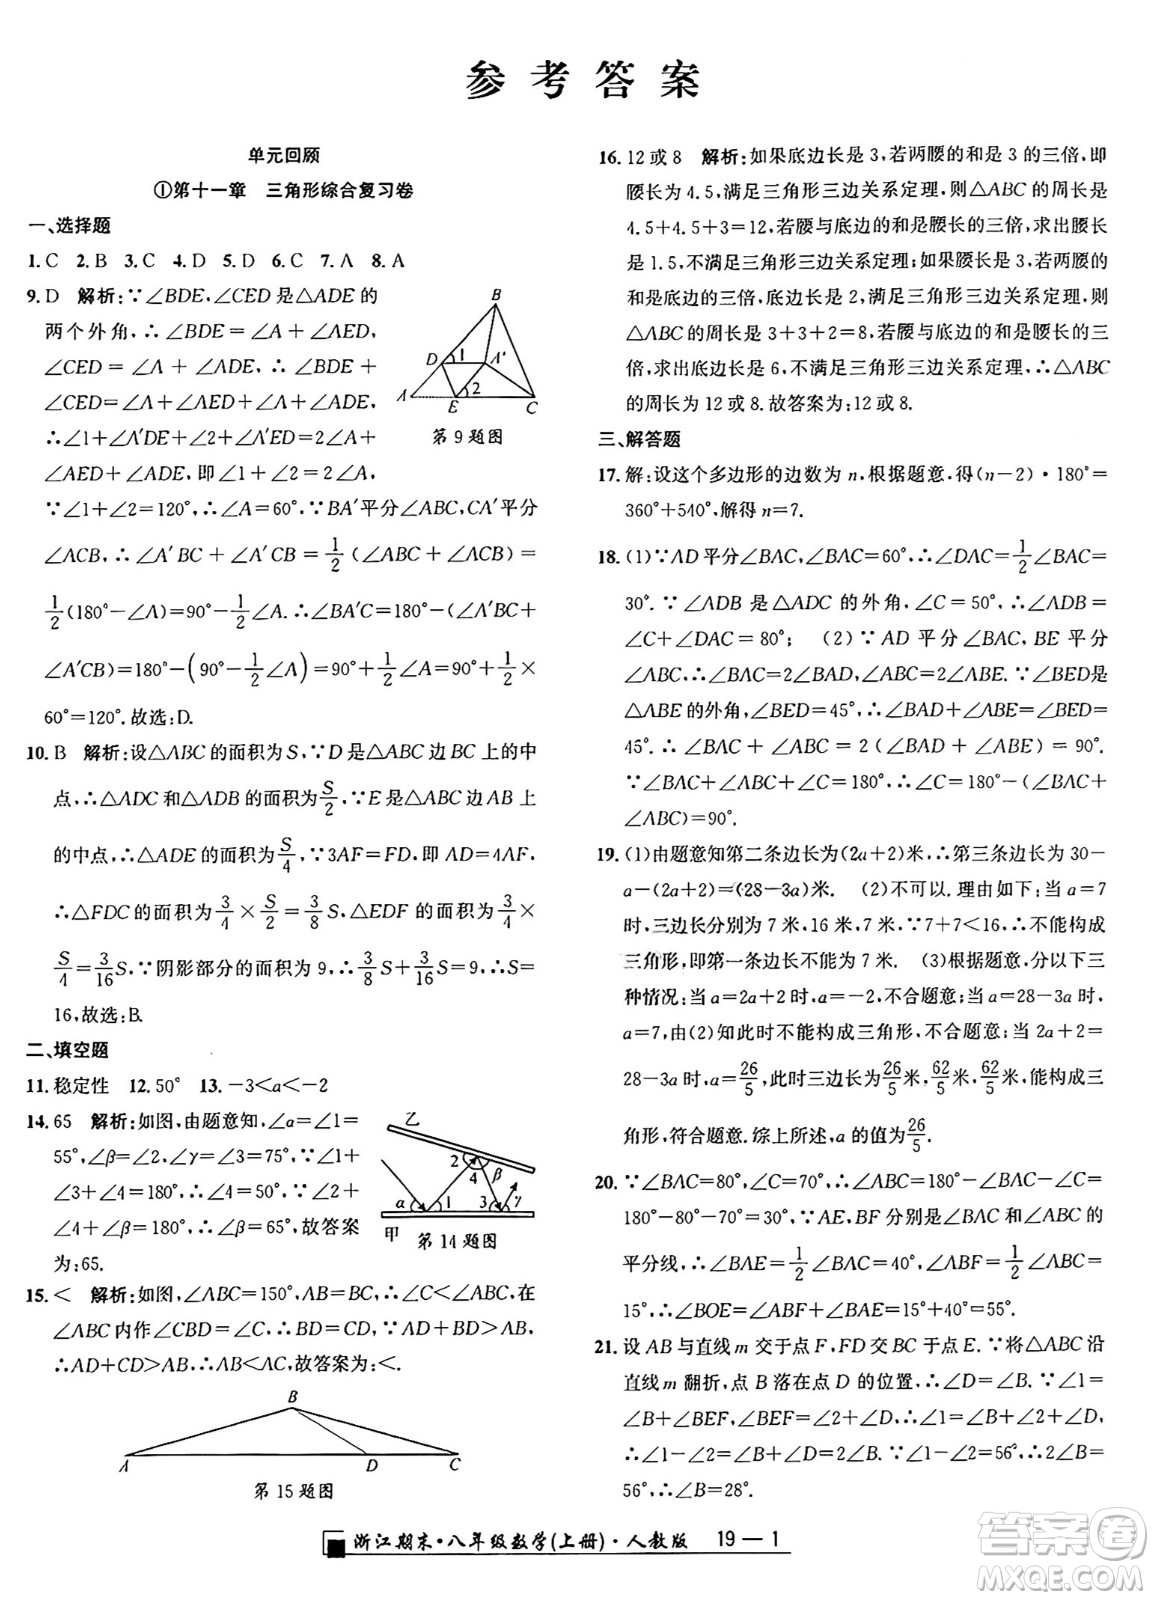 参考答案
单元回顾
①第十一章 三角形综合复习卷
一、选择题
1. C 2. B 3. C 4. D 5. D 6. C 7. A 8. A
9. D 解析:∵∠BDE,∠CED是△ADE的
两个外角,∴∠BDE=∠A+∠AED,
∠CED=∠A+∠ADE,∴∠BDE+
∠CED=∠A+∠AED+∠A+∠ADE,
∴∠1+∠A′DE+∠2+∠A′ED=2∠A+
∠AED+∠ADE,即∠1+∠2=2∠A.
∵∠1+∠2=120°,∴∠A=60°.∵BA′平分∠ABC,CA′平分
∠ACB,∴∠A′BC+∠A′CB=1/2(∠ABC+∠ACB)=
1/2(180°-∠A)=90°-1/2∠A.∴∠BA′C=180°-(∠A′BC+
∠A′CB)=180°-(90°-1/2∠A)=90°+1/2∠A=90°+1/2×
60°=120°.故选:D.
B
D
1
A′
2
A
E
C
第9题图
10. B 解析:设△ABC的面积为S,∵D是△ABC边BC上的中
点,∴△ADC和△ADB的面积为S/2,∵E是△ABC边AB上
的中点,∴△ADE的面积为S/4,∵3AF=FD,即AD=4AF,
∴△FDC的面积为3/4×S/2=3/8S,△EDF的面积为3/4×
S/4=3/16S,∵阴影部分的面积为9,∴3/8S+3/16S=9,∴S=
16,故选:B.
二、填空题
11. 稳定性 12. 50° 13. -3<a<-2
14. 65 解析:如图,由题意知,∠α=∠1=
55°,∠β=∠2,∠γ=∠3=75°,∵∠2+
∠3+∠4=180°,∠4=50°,∵∠2+
∠4+∠β=180°,∴∠β=65°,故答案
为:65.
乙
2
4
β
α
1
3
γ
甲
第14题图
15. < 解析:如图,∠ABC=150°,AB=CD,∴∠C<∠ABC,在
∠ABC内作∠CBD=∠C,∴BD=CD,∵AD+BD>AB,
∴AD+CD>AB,∴AB<AC,故答案为:<.
B
A
D
C
第15题图
16. 12或8 解析:如果底边长是3,若两腰的和是3的三倍,即
腰长为4.5,满足三角形三边关系定理,则△ABC的周长为
4.5+4.5+3=12,若腰与底边的和是腰长的三倍,求出腰长
是1.5,不满足三角形三边关系定理;如果腰长是3,若两腰的
和是底边的三倍,底边长是2,满足三角形三边关系定理,则
△ABC的周长是3+3+2=8,若腰与底边的和是腰长的三
倍,求出底边长是6,不满足三角形三边关系定理,∴△ABC
的周长为12或8.故答案为:12或8.
三、解答题
17. 解:设这个多边形的边数为n,根据题意,得(n-2)·180°=
360°+540°,解得n=7.
18. (1)∵AD平分∠BAC,∠BAC=60°,∴∠DAC=1/2∠BAC=
30°.∵∠ADB是△ADC的外角,∠C=50°,∴∠ADB=
∠C+∠DAC=80°; (2)∵AD平分∠BAC,BE平分
∠ABC,∴∠BAC=2∠BAD,∠ABC=2∠ABE.∵∠BED是
△ABE的外角,∠BED=45°,∴∠BAD+∠ABE=∠BED=
45°.∴∠BAC+∠ABC=2(∠BAD+∠ABE)=90°.
∵∠BAC+∠ABC+∠C=180°,∴∠C=180°-(∠BAC+
∠ABC)=90°.
19. (1)由题意知第二条边长为(2a+2)米,∴第三条边长为30-
a-(2a+2)=(28-3a)米. (2)不可以.理由如下:当a=7
时,三边长分别为7米,16米,7米,∵7+7<16,∴不能构成
三角形,即第一条边长不能为7米. (3)根据题意,分以下三
种情况:当a=2a+2时,a=-2,不合题意;当a=28-3a时,
a=7,由(2)知此时不能构成三角形,不合题意;当2a+2=
28-3a时,a=26/5,此时三边长为26/5米,62/5米,62/5米,能构成三
角形,符合题意.综上所述,a的值为26/5.
20. ∵∠BAC=80°,∠C=70°,∴∠ABC=180°-∠BAC-∠C=
180°-80°-70°=30°,∵AE,BF分别是∠BAC和∠ABC的
平分线,∴∠BAE=1/2∠BAC=40°,∠ABF=1/2∠ABC=
15°,∴∠BOE=∠ABF+∠BAE=15°+40°=55°.
21. 设AB与直线m交于点F,FD交BC于点E.∵将△ABC沿
直线m翻折,点B落在点D的位置,∴∠D=∠B.∵∠1=
∠B+∠BEF,∠BEF=∠2+∠D,∴∠1=∠B+∠2+∠D,
∴∠1=∠2+2∠B,∴∠1-∠2=2∠B=56°,∴∠B=28°.
56°,∴∠C=∠B=28°.
浙江期末·八年级数学(上册)·人教版 19—1
作业精灵
MXQE.COM